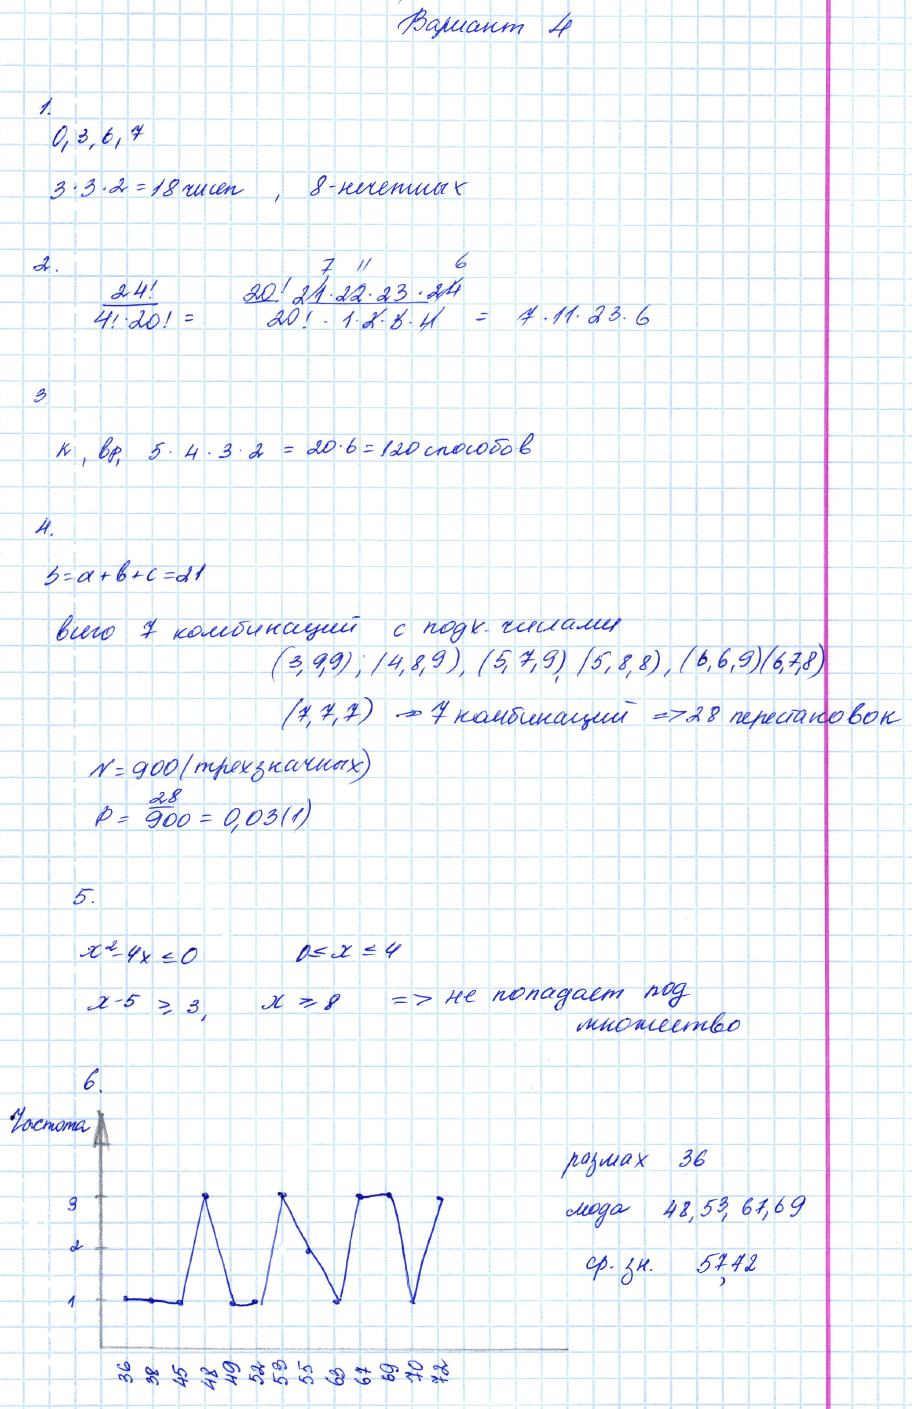 Вариант 4
1.
0, 3, 6, 7
3·3·2=18 чисел , 8-нечетных
2.
7 11 6
24! 20! 21·22·23·24
4!·20! = 20! · 1·2·3·4 = 7·11·23·6
3
к, вр, 5·4·3·2 = 20·6=120 способов
4.
S=a+b+c=21
всего 7 комбинаций с подх. числами
(3,9,9); (4,8,9), (5,7,9), (5,8,8), (6,6,9)(6,7,8)
(7,7,7) → 7 комбинаций => 28 перестановок
N=900 (трехзначных)
P = 28/900 = 0,03(1)
5.
x²-4x ≤0 0≤ x ≤ 4
x-5 ≥ 3, x ≥ 8 => не попадает под
множество
6.
Частота
размах 36
3
мода 48, 53, 67, 69
2
ср. зн. 57,72
1
36 38 45 48 49 52 53 55 63 67 69 70 72